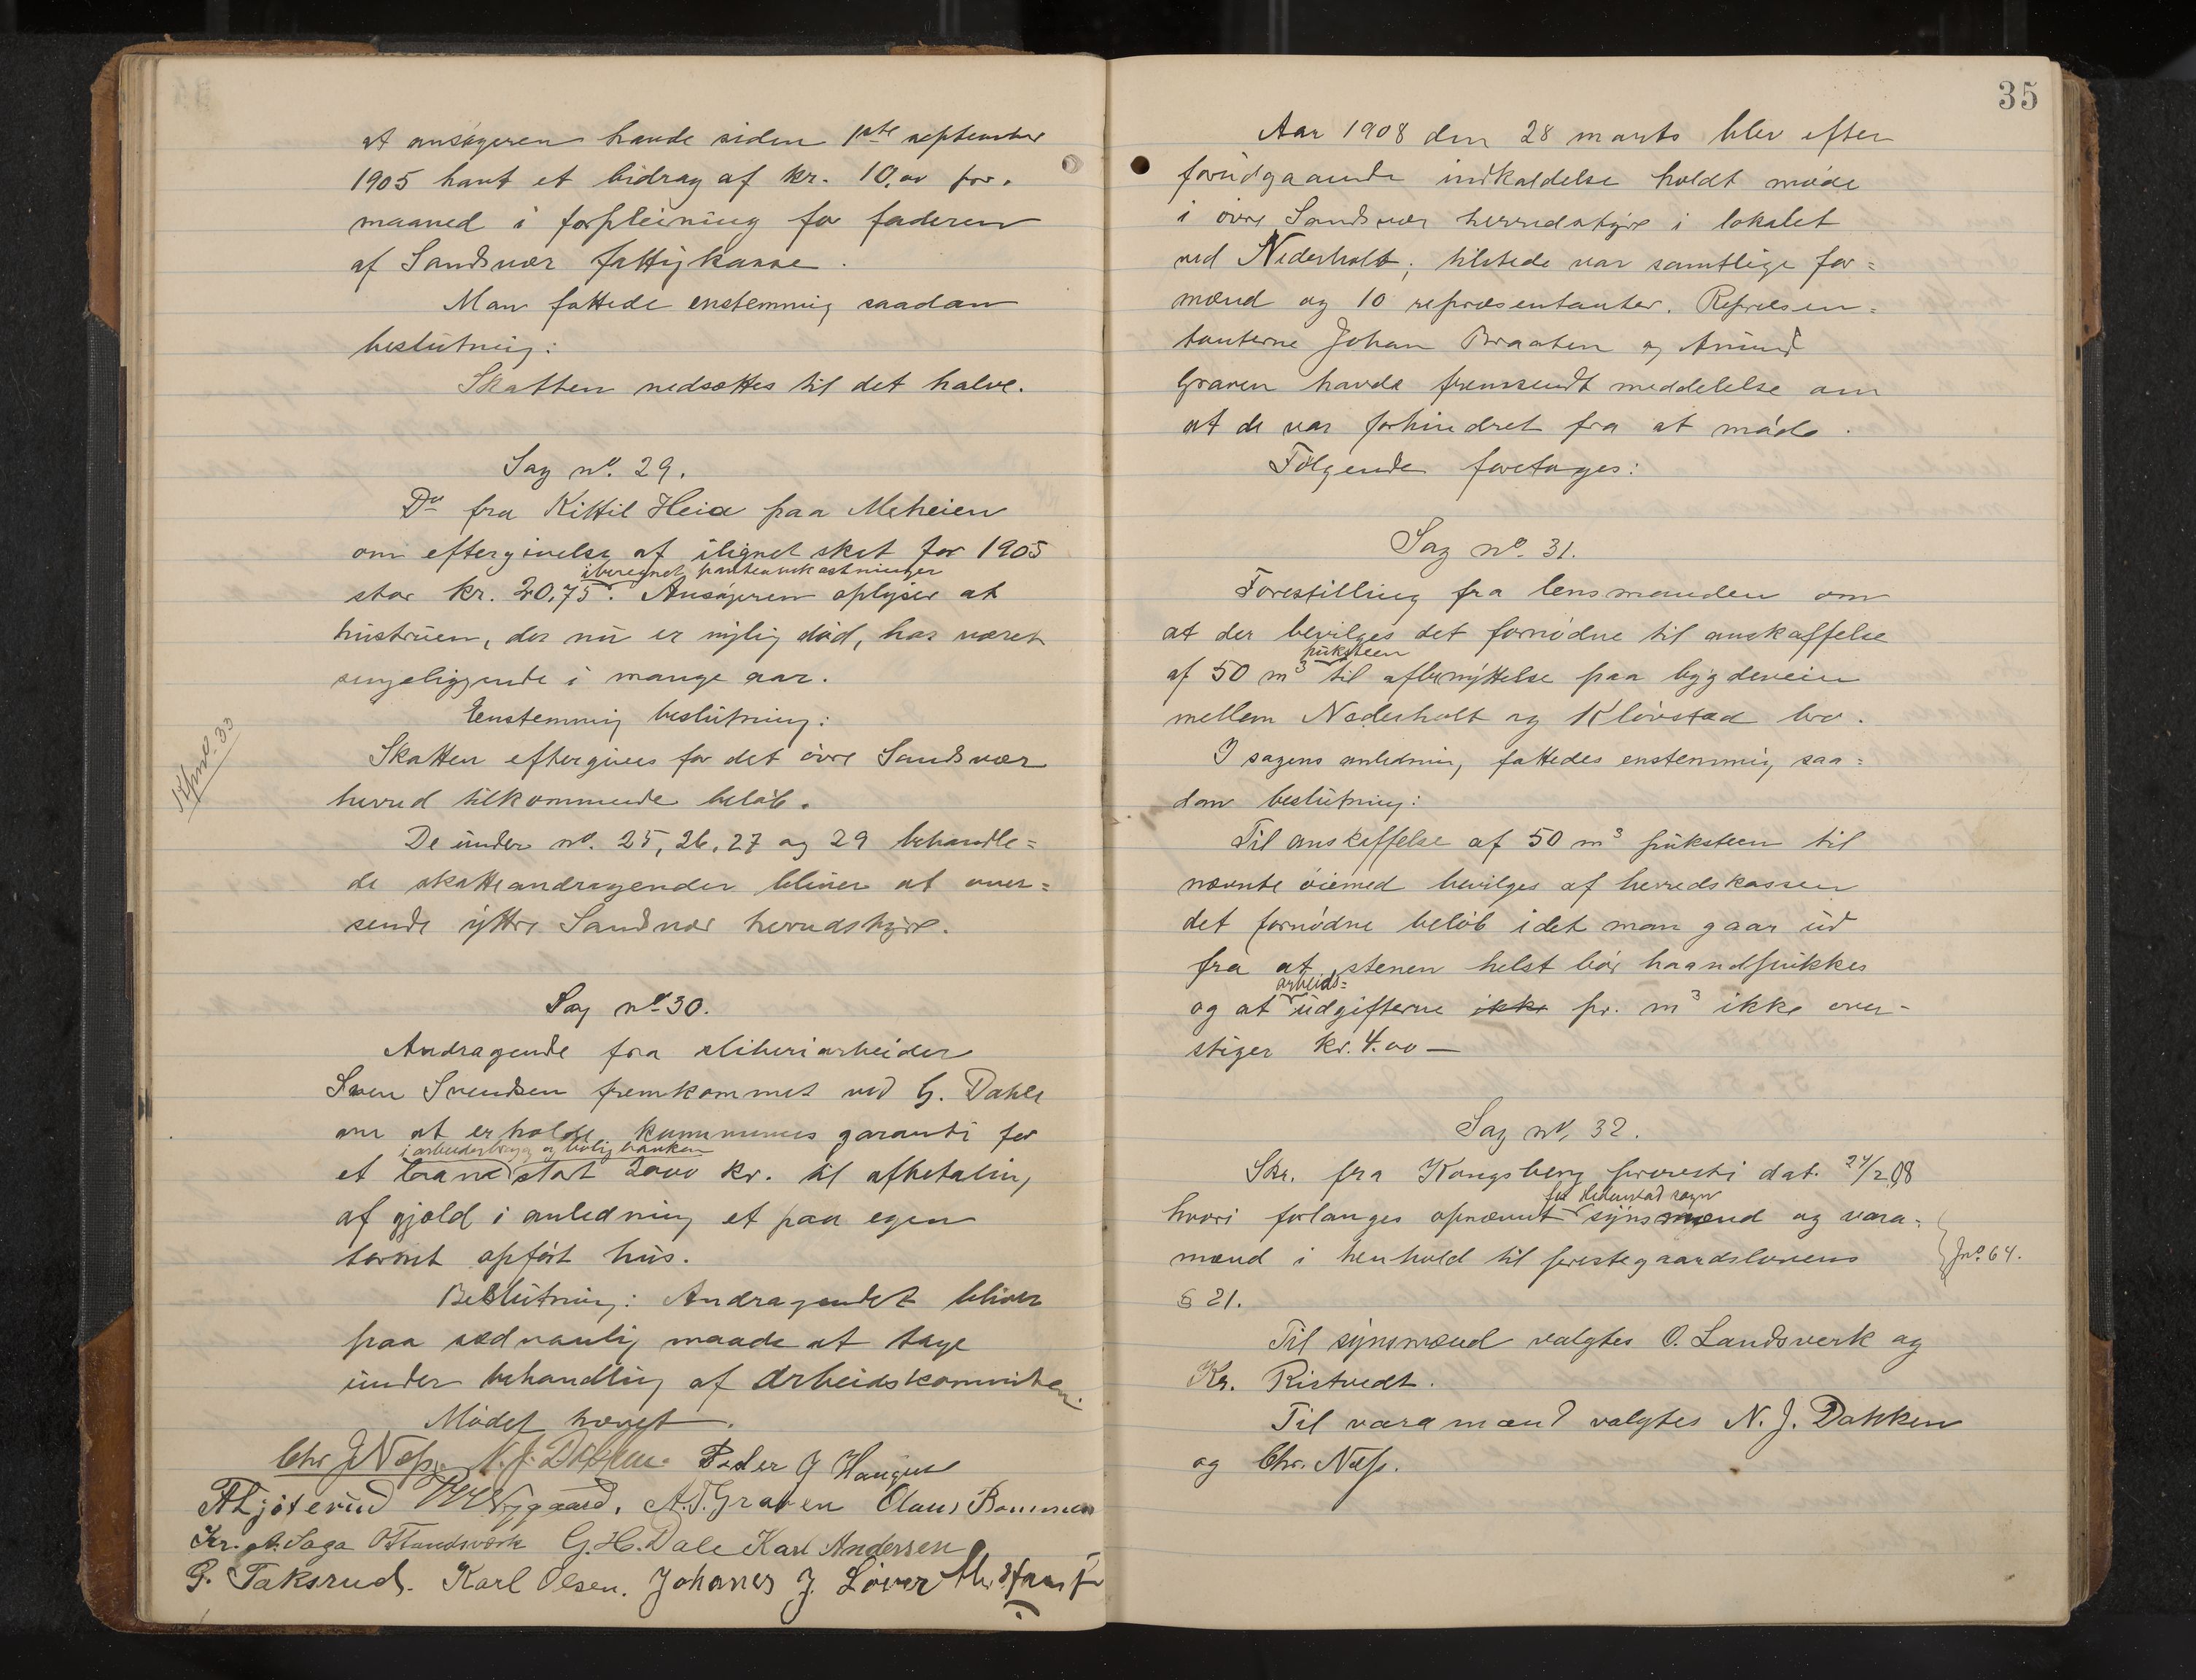 at ansøgeren havde siden 1ste september
1905 havt et bidrag af kr. 10,00 pr.
maaned i forpleining for faderen
af Sandsvær fattigkasse.
Man fattede enstemmig saadan
beslutning:
Skatten nedsættes til det halve.
Sag no. 29.
Do fra Kittil Heia paa Meheien
om eftergivelse af ilignet skat for 1905
iberegnet panteomkostninger
stor kr. 20,75. Ansøgeren oplyser at
hustruen, der nu er nylig død, har været
sengeliggende i mange aar.
Enstemmig beslutning:
Skatten eftergives for det øvre Sandsvær
herred tilkommende beløb.
De under no. 25, 26, 27 og 29 behandle=
de skatteandragender bliver at over=
sende ytre Sandsvær herredsstyre.
Sag no 30.
Andragende fra sliberiarbeider
Sven Svendsen fremkommet ved G. Dahle
om at erholde kommunens garanti for
i arbeiderbrug og boligbanken
et laan stort 2000 kr. til afbetaling
af gjæld i anledning et paa egen
tomt opført hus.
Beslutning: Andragendet bliver
paa sædvanlig maade at tage
under behandling af Arbeidskommiteen.
Mødet hævet.
Chr. J Næss. N. J. Dokken. Peder G Haugen
Nyggaard, A. T. Graven Olaus Bommen
Kr. A. Saga O Landsværk G. H. Dale Karl Andersen
G. Taksrud. Karl Olsen. Johanes J. Løver
35
Aar 1908 den 28 marts blev efter
forudgaaende indkaldelse holdt møde
i øvre Sandsvær herredsstyre i lokalet
ved Nederholt; tilstede var samtlige for=
mænd og 10 repræsentanter. Repræsen=
tanterne Johan Braaten og Amund
Graven havde fremsendt meddelelse om
at de var forhindret fra at møde.
Følgende foretages:
Sag no. 31.
Forestilling fra lensmanden om
at der bevilges det fornødne til anskaffelse
puksteen
af 50 m3 til afbenyttelse paa bygdeveien
mellem Nederholt og Kløvstad bro.
I sagens anledning fattedes enstemmig saa=
dan beslutning:
Til anskaffelse af 50 m3 puksteen til
nævnte øiemed bevilges af herredskassen
det fornødne beløb idet man gaar ud
fra at stenen helst bør haandpukkes
arbeids=
og at udgifterne ikke pr. m3 ikke over-
stiger kr. 4.00 —
Sag no. 32.
Skr. fra Kongsberg provsti dat. 24/2 08
for Hedenstad sogn
hvori forlanges opnævnt synsmænd og vara=
mænd i henhold til prestegaardslovens
Jno. 64.
§ 21.
Til synsmænd valgtes O. Landsverk og
Kr. Ristvedt.
Til varamænd valgtes N. J. Dokken
og Chr. Næss.